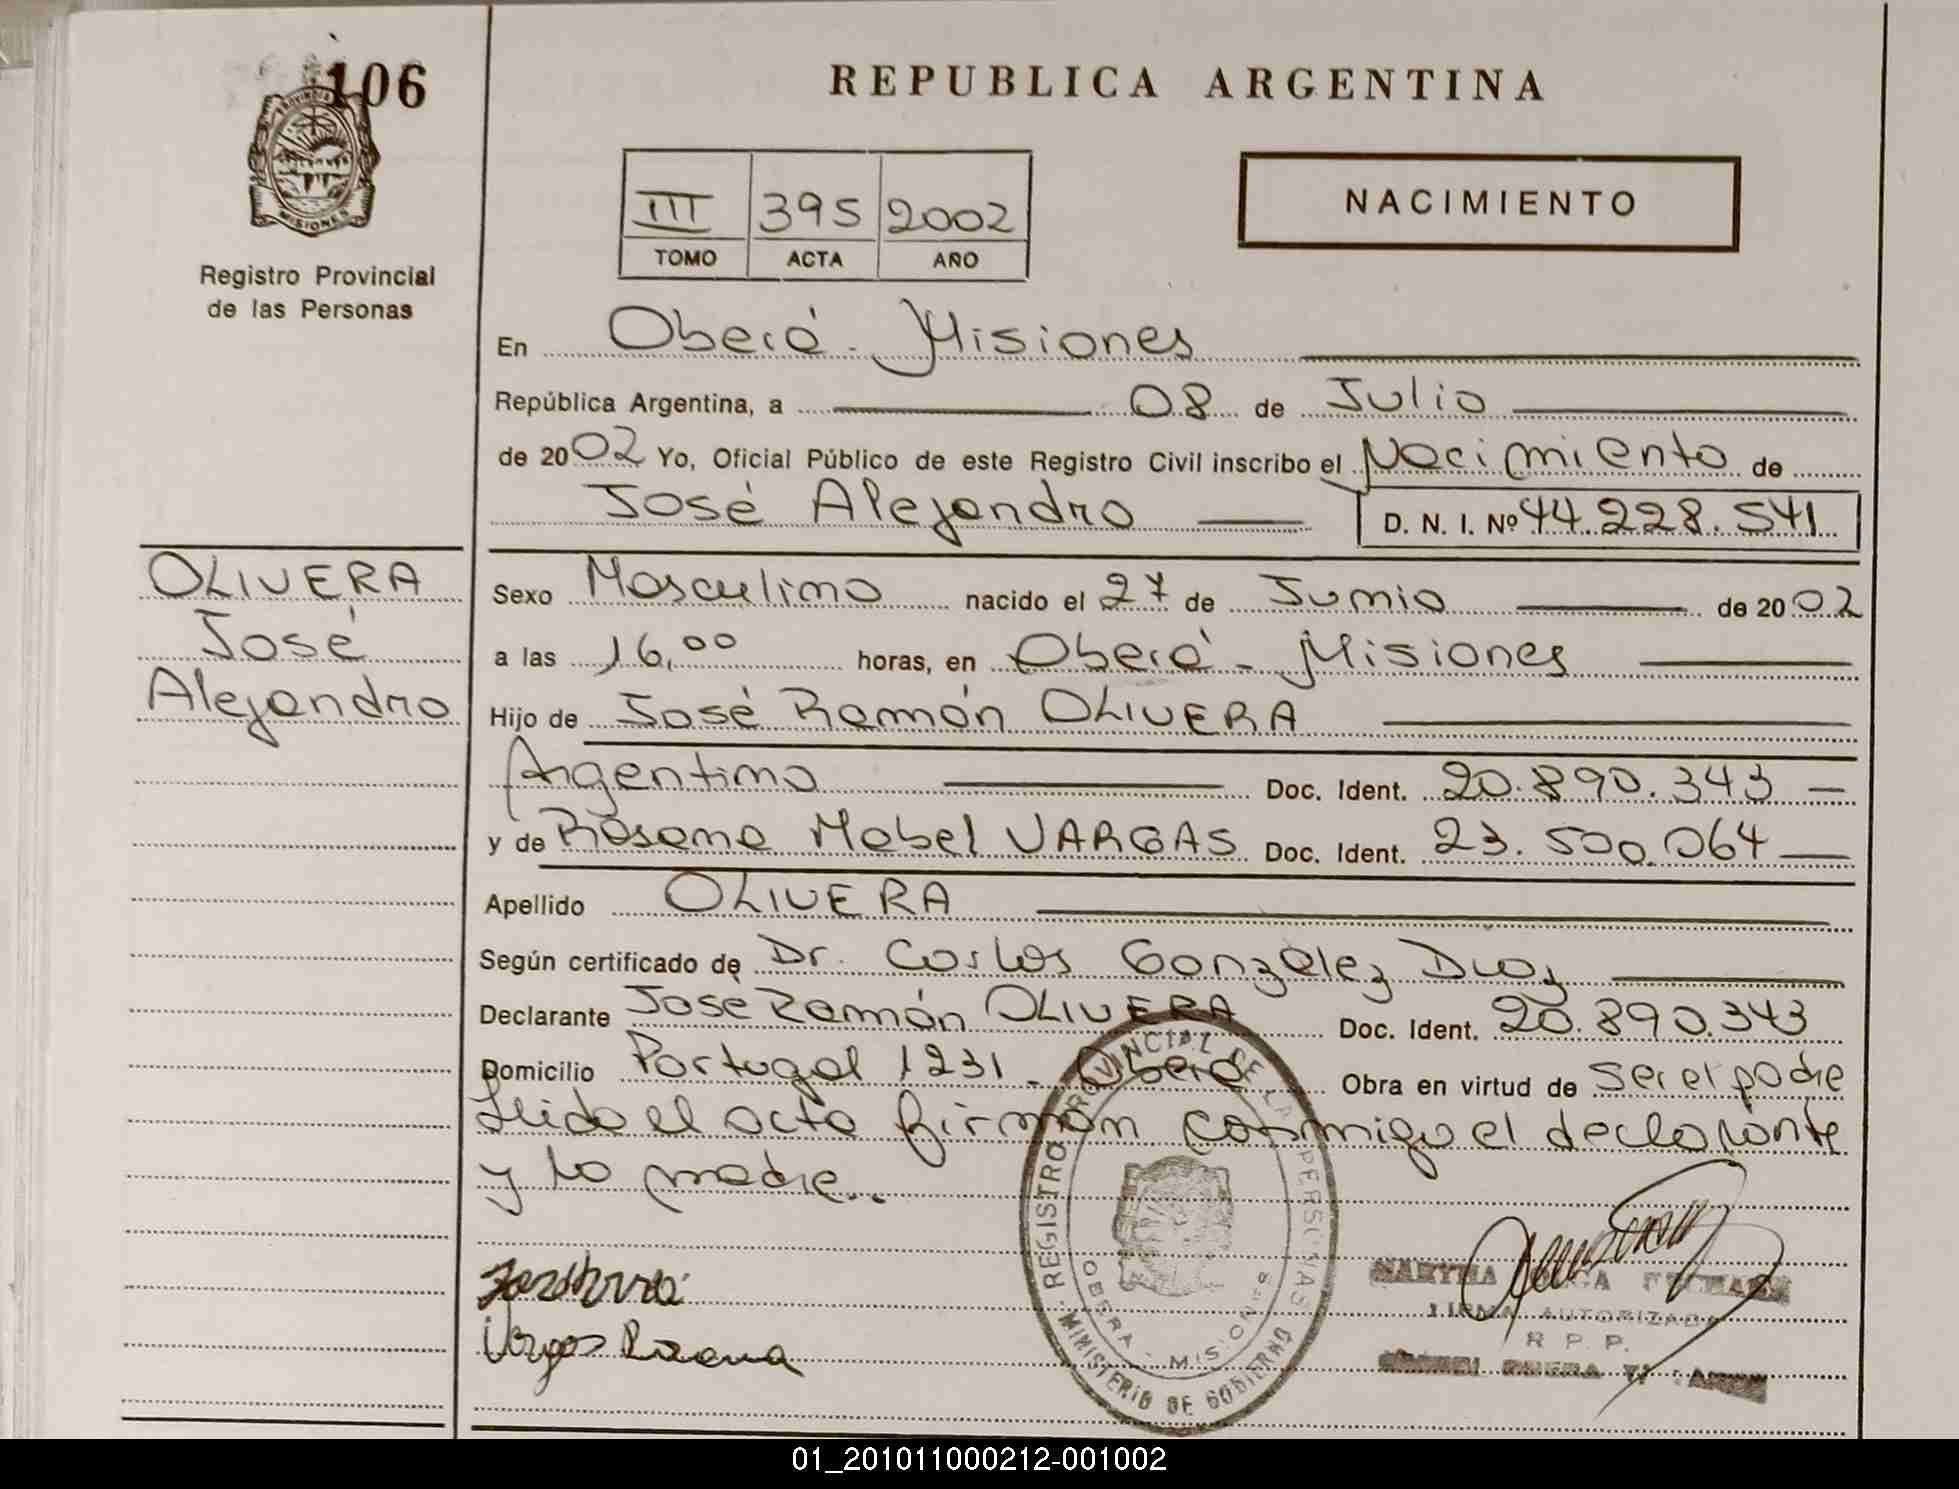 106
PROVINCIA
MISIONES
Registro Provincial
de las Personas
REPUBLICA ARGENTINA
III 395 2002
TOMO ACTA AÑO
NACIMIENTO
En Oberá - Misiones
República Argentina, a 08 de Julio
de 2002 Yo, Oficial Público de este Registro Civil inscribo el Nacimiento de
José Alejandro D. N. I. Nº 44.228.541
OLIVERA
José
Alejandro
Sexo Masculino nacido el 27 de Junio de 2002
a las 16,00 horas, en Oberá - Misiones
Hijo de José Ramón OLIVERA
Argentino Doc. Ident. 20.890.343
y de Rosana Mabel VARGAS Doc. Ident. 23.500.064
Apellido OLIVERA
Según certificado de Dr. Carlos González Díaz
Declarante José Ramón OLIVERA Doc. Ident. 20.890.343
Domicilio Portugal 1231 - Oberá Obra en virtud de ser el padre
Leida el acta firman conmigo el declarante
y la madre..
REGISTRO PROVINCIAL DE LAS PERSONAS
OBERA - MISIONES
MINISTERIO DE GOBIERNO
Vargas Rosana
MARTHA
FIRMA AUTORIZADA
R. P. P.
01_201011000212-001002